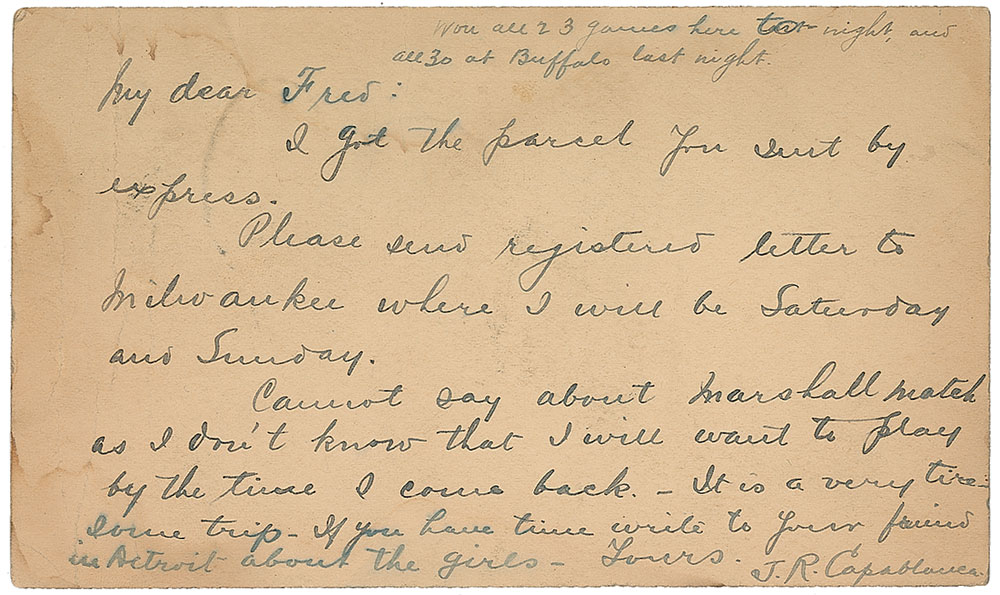 Won all 23 games here to-night, and
all 30 at Buffalo last night.
My dear Fred:
I got the parcel you sent by
express.
Please send registered letter to
Milwaukee where I will be Saturday
and Sunday.
Cannot say about Marshall match
as I don't know that I will want to play
by the time I come back. - It is a very tire-
some trip - If you have time write to your friend
in Detroit about the girls - Yours.
J. R. Capablanca.